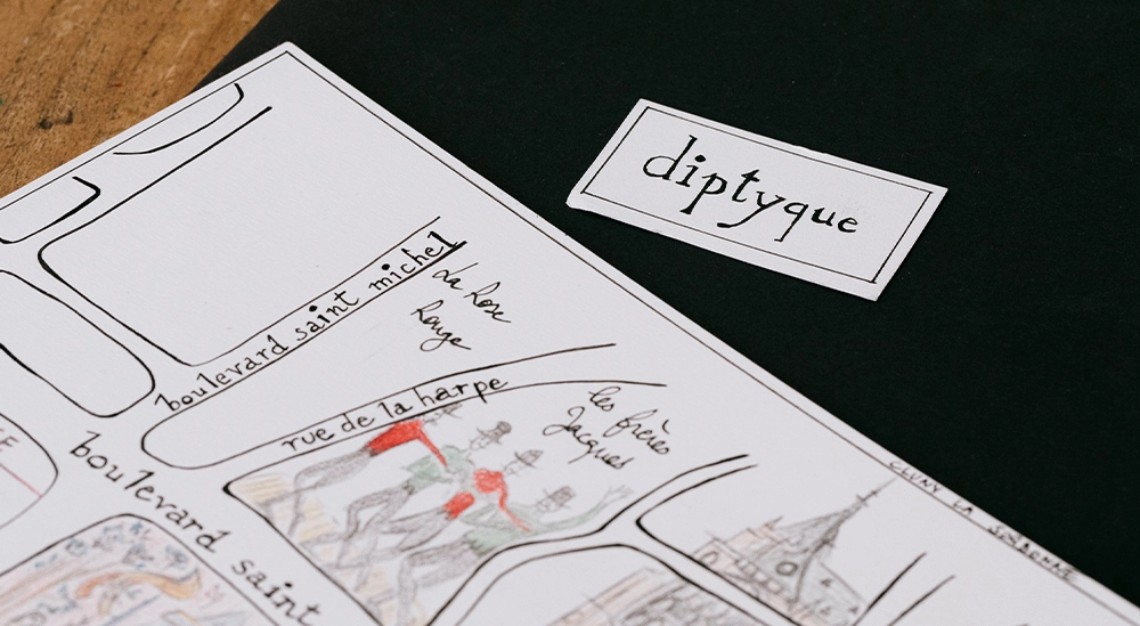 diptyque
boulevard saint michel
La Rose
Rouge
rue de la harpe
les frères
Jacques
boulevard saint
CLUNY LA SORBONNE